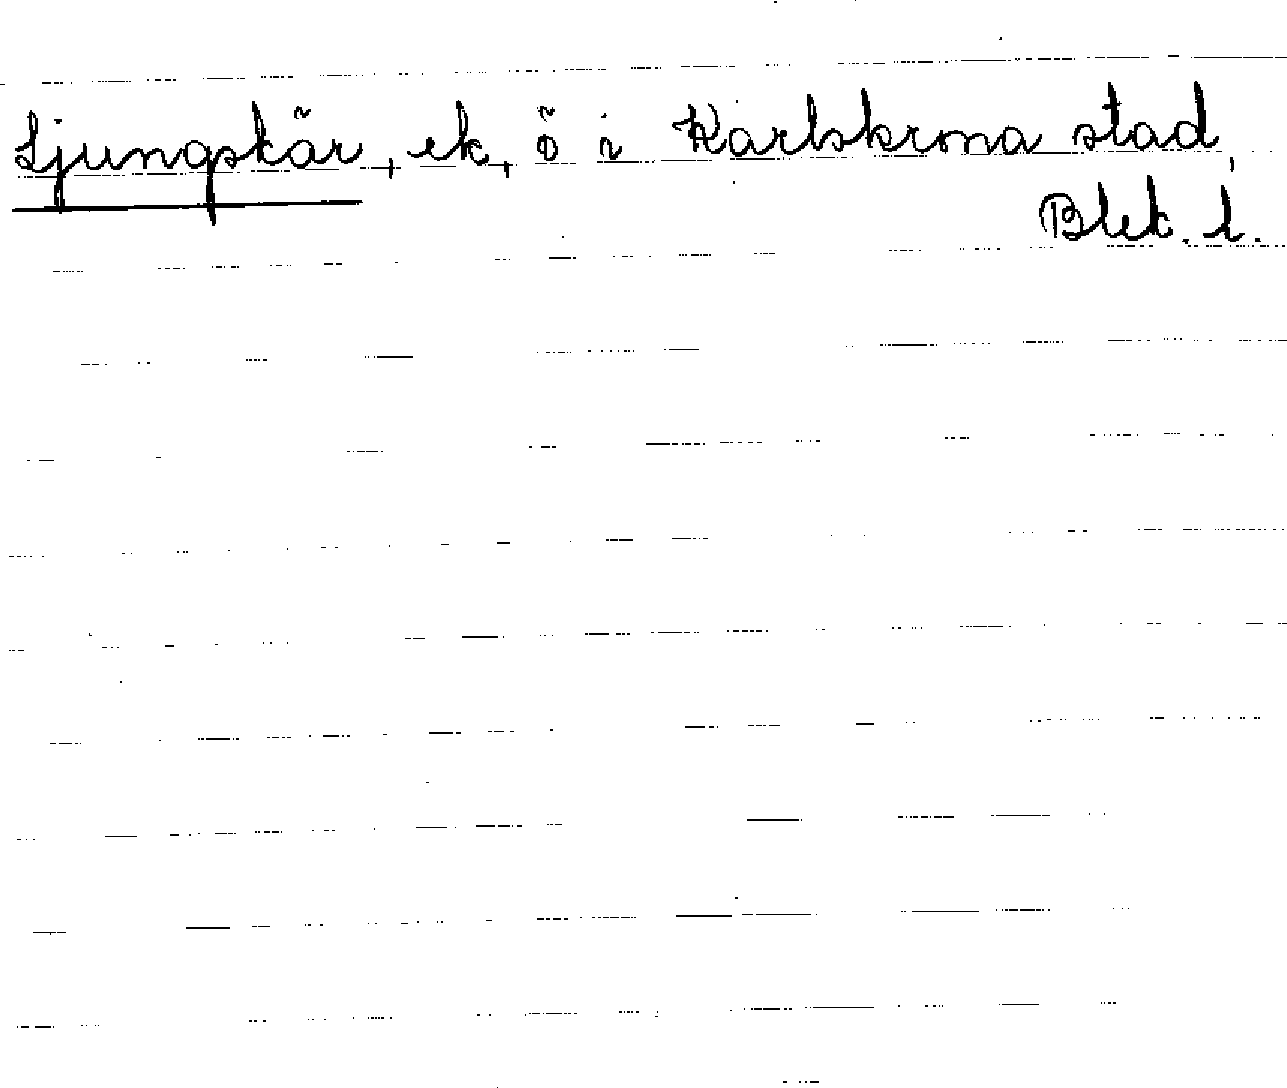 Ljungskär, ek, ö i Karlskrona stad,
Blek. l.